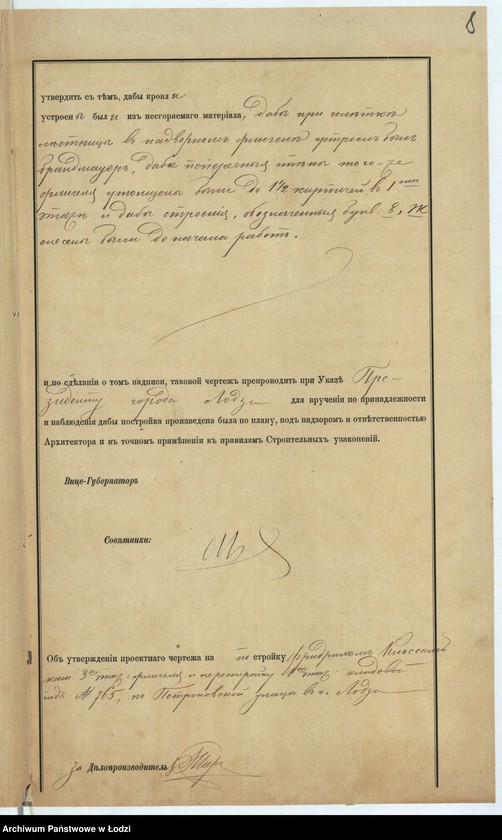 8
утвердить съ тѣмъ, дабы кровля
устроены были изъ несгораемаго матеріала, дабы при клѣткѣ
лѣстницы въ надворномъ флигелѣ устроенъ былъ
брандмауеръ, дабы поперечныя стѣны того-же
флигеля утолщены были до 1½ кирпичей въ 1омъ
этажѣ и дабы строенія, обозначенныя букв. Е, Ж
снесены были до начала работъ.
и по сдѣланіи о томъ надписи, таковой чертежъ препроводить при Указѣ Пре-
зиденту города Лодзи для врученія по принадлежности
и наблюденія дабы постройка произведена была по плану, подъ надзоромъ и отвѣтственностью
Архитектора и въ точномъ примѣненіи къ правиламъ Строительныхъ узаконеній.
Вице-Губернаторъ
Совѣтники:
Объ утвержденіи проектнаго чертежа на постройку Фридрихомъ
3хъ этаж. флигеля и перестройку этаж. кладовой
подъ № 765, по Петроковской улицѣ въ г. Лодзи
за Дѣлопроизводитель
Archiwum Państwowe w Łodzi